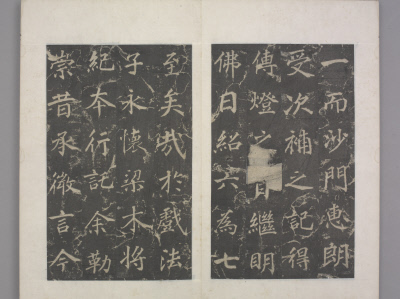 一而沙門惠朗
受次補之記得
傳燈之 目繼明
佛日紹六為七
至矣哉於戲法
子永懷梁木將
紀本行託余勒
崇昔承徽言今